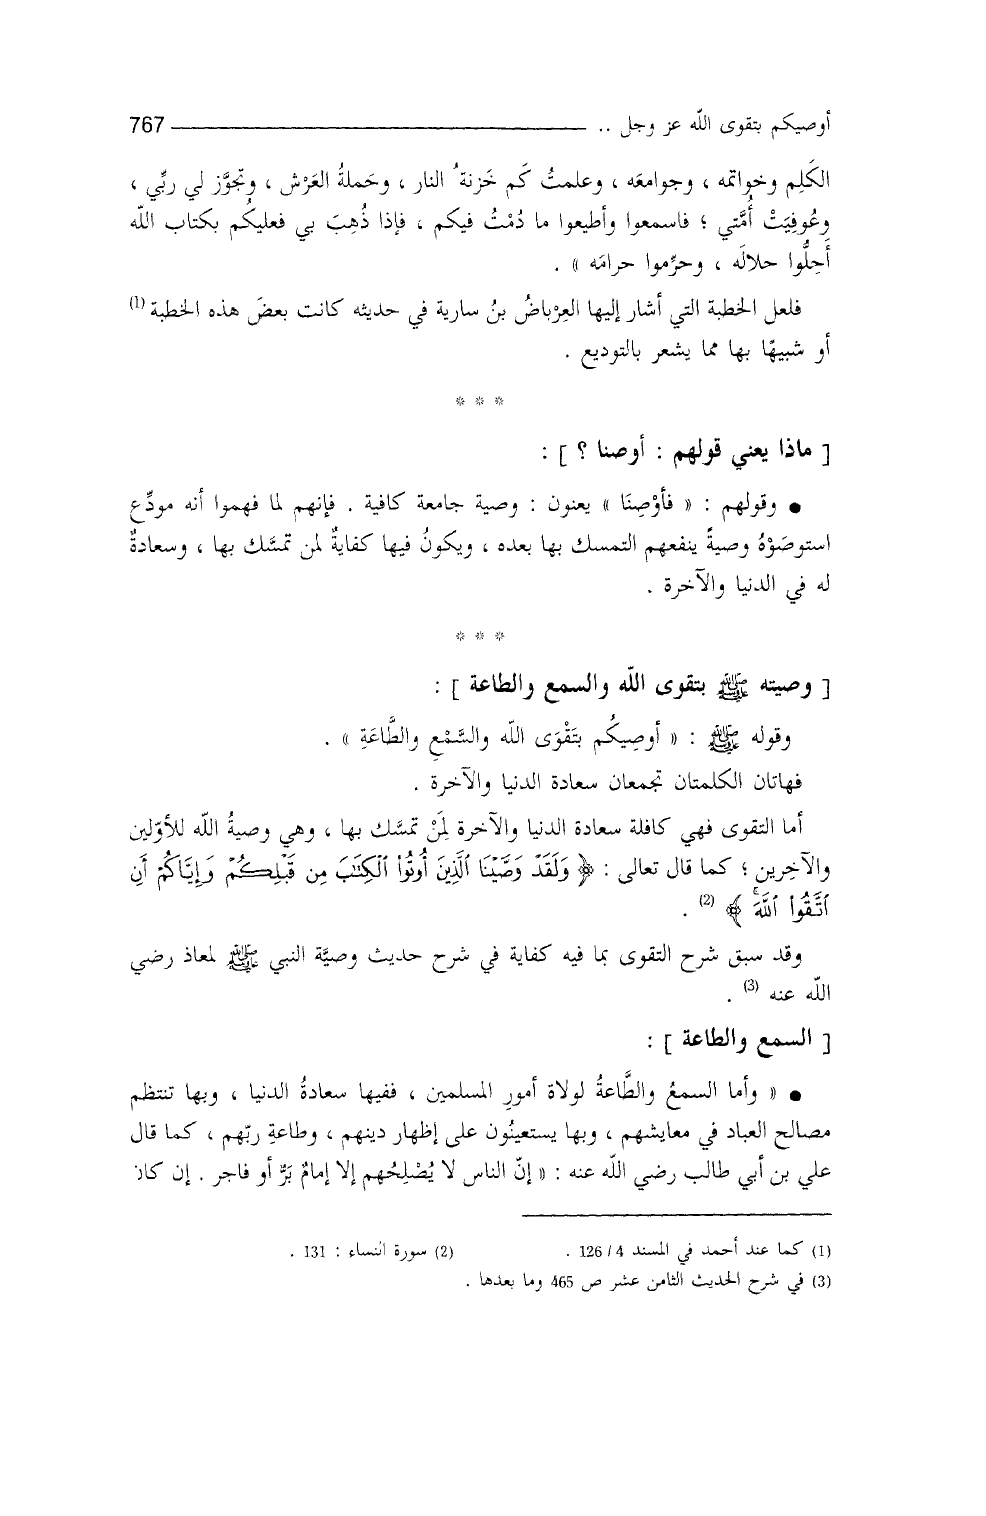 أوصيكم بتقوى الله عز وجل .. 767
الكَلِم وخواتمه ، وجوامعَه ، وعلمتُ كَم خَزنةُ النار ، وحَملةُ العَرْش ، وتجوَّز لي ربِّي ،
وعُوفِيَتْ أُمَّتي ؛ فاسمعوا وأطيعوا ما دُمْتُ فيكم ، فإذا ذُهِبَ بي فعليكُم بكتاب الله
أَحِلُّوا حلالَه ، وحرِّموا حرامَه » .
فلعل الخطبة التي أشار إليها العِرْباضُ بنُ سارية في حديثه كانت بعضَ هذه الخطبة (1)
أو شبيهًا بها مما يشعر بالتوديع .
* * *
[ ماذا يعني قولهم : أوصنا ؟ ] :
● وقولهم : « فأوْصِنَا » يعنون : وصية جامعة كافية . فإنهم لما فهموا أنه مودِّع
استوصَوْهُ وصيةً ينفعهم التمسك بها بعده ، ويكونُ فيها كفايةٌ لمن تمسَّك بها ، وسعادةٌ
له في الدنيا والآخرة .
* * *
[ وصيته ﷺ بتقوى الله والسمع والطاعة ] :
وقوله ﷺ : « أوصِيكُم بتَقْوَى الله والسَّمْعِ والطَّاعَةِ » .
فهاتان الكلمتان تجمعان سعادة الدنيا والآخرة .
أما التقوى فهي كافلة سعادة الدنيا والآخرة لِمَنْ تمسَّك بها ، وهي وصيةُ الله للأوّلين
والآخِرين ؛ كما قال تعالى : ﴿ وَلَقَدْ وَصَّيْنَا ٱلَّذِينَ أُوتُوا۟ ٱلْكِتَـٰبَ مِن قَبْلِكُمْ وَإِيَّاكُمْ أَنِ
ٱتَّقُوا۟ ٱللَّهَ ۚ ﴾ (2) .
وقد سبق شرح التقوى بما فيه كفاية في شرح حديث وصيَّة النبي ﷺ لمعاذ رضي
الله عنه (3) .
[ السمع والطاعة ] :
● « وأما السمعُ والطَّاعةُ لولاة أمورِ المسلمين ، ففيها سعادةُ الدنيا ، وبها تنتظم
مصالح العباد في معايشهم ، وبها يستعينُون على إظهار دينهم ، وطاعةِ ربّهم ، كما قال
علي بن أبي طالب رضي الله عنه : « إنّ الناس لا يُصْلِحُهم إلا إمامٌ بَرٌّ أو فاجر . إن كان
(1) كما عند أحمد في المسند 4 / 126 . (2) سورة النساء : 131 .
(3) في شرح الحديث الثامن عشر ص 465 وما بعدها .